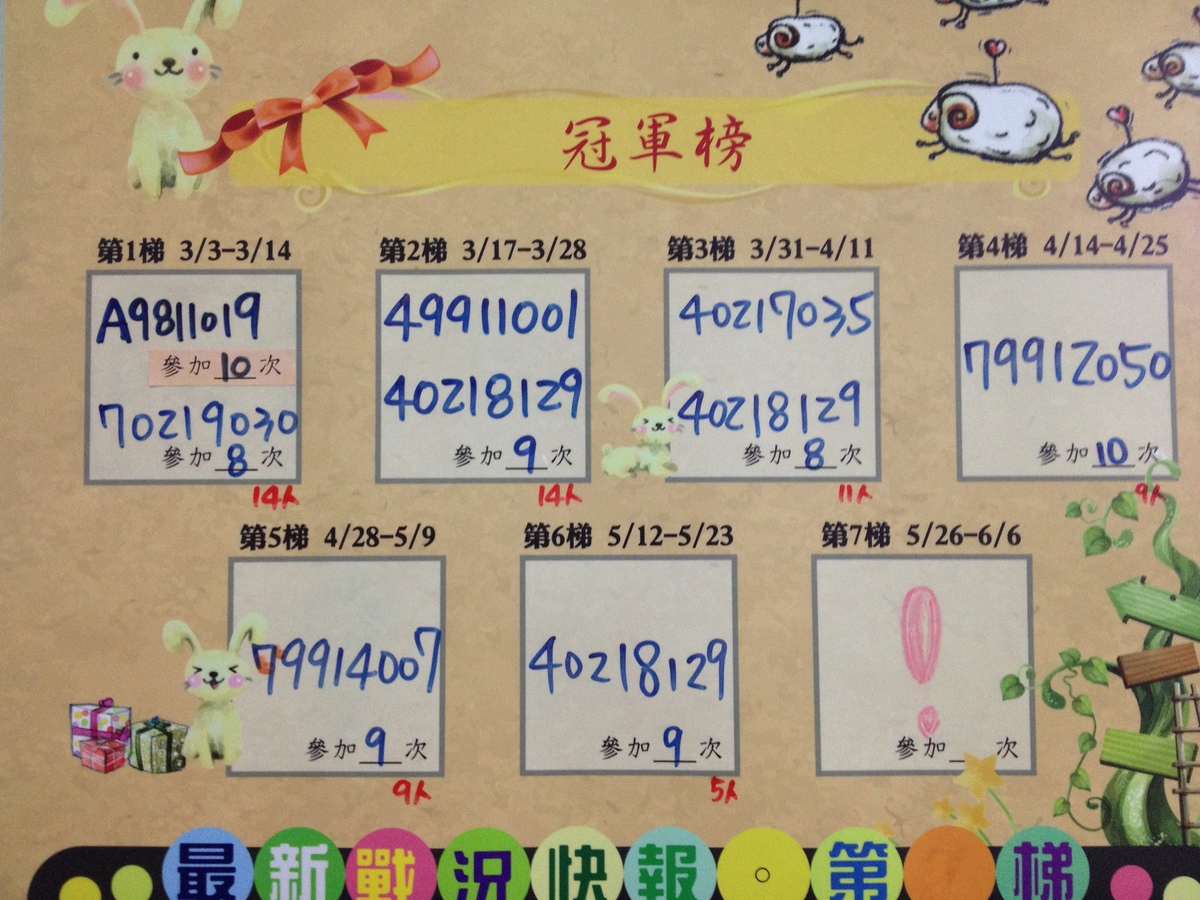 冠軍榜
第1梯 3/3-3/14
A9811019
參加10次
70219030
參加8次
14人
第2梯 3/17-3/28
49911001
40218129
參加9次
14人
第3梯 3/31-4/11
40217035
40218129
參加8次
11人
第4梯 4/14-4/25
79912050
參加10次
9人
第5梯 4/28-5/9
79914007
參加9次
9人
第6梯 5/12-5/23
40218129
參加9次
5人
第7梯 5/26-6/6
!
參加__次
最新戰況快報。第 梯